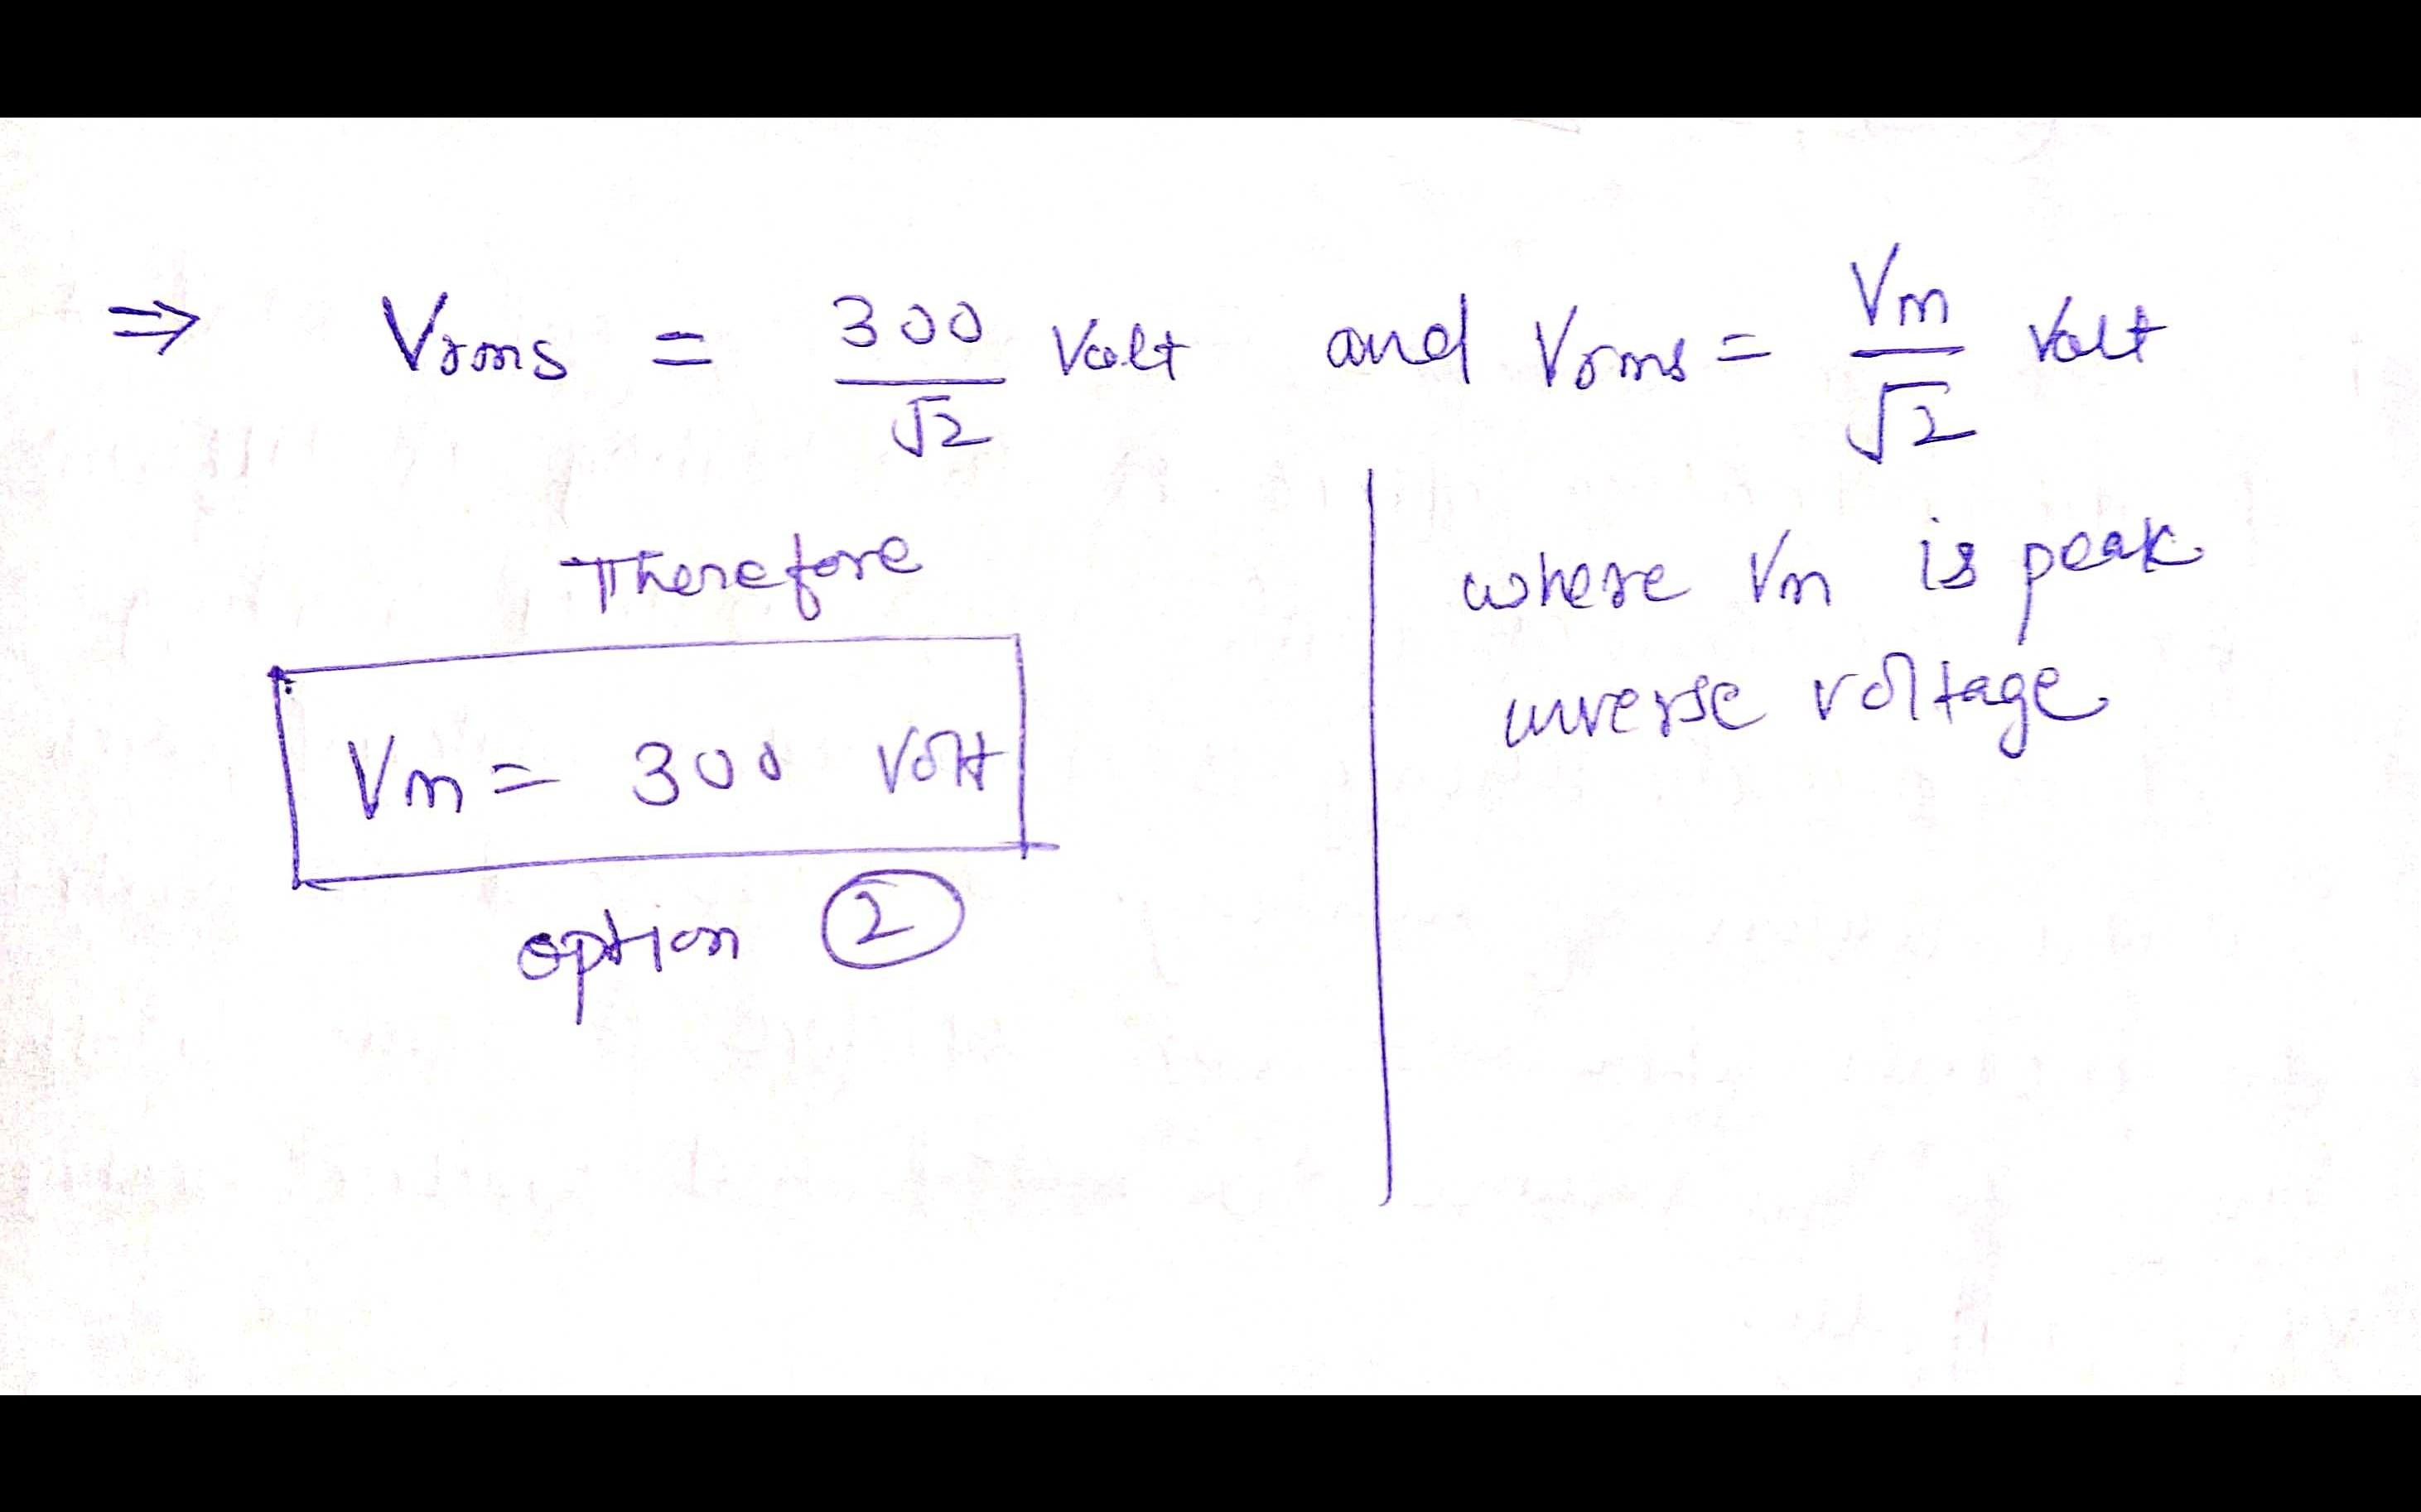 ⇒ Vrms = 300/√2 Volt and Vrms = Vm/√2 Volt
Therefore
Vm = 300 Volt
option ②
where Vm is peak
inverse voltage